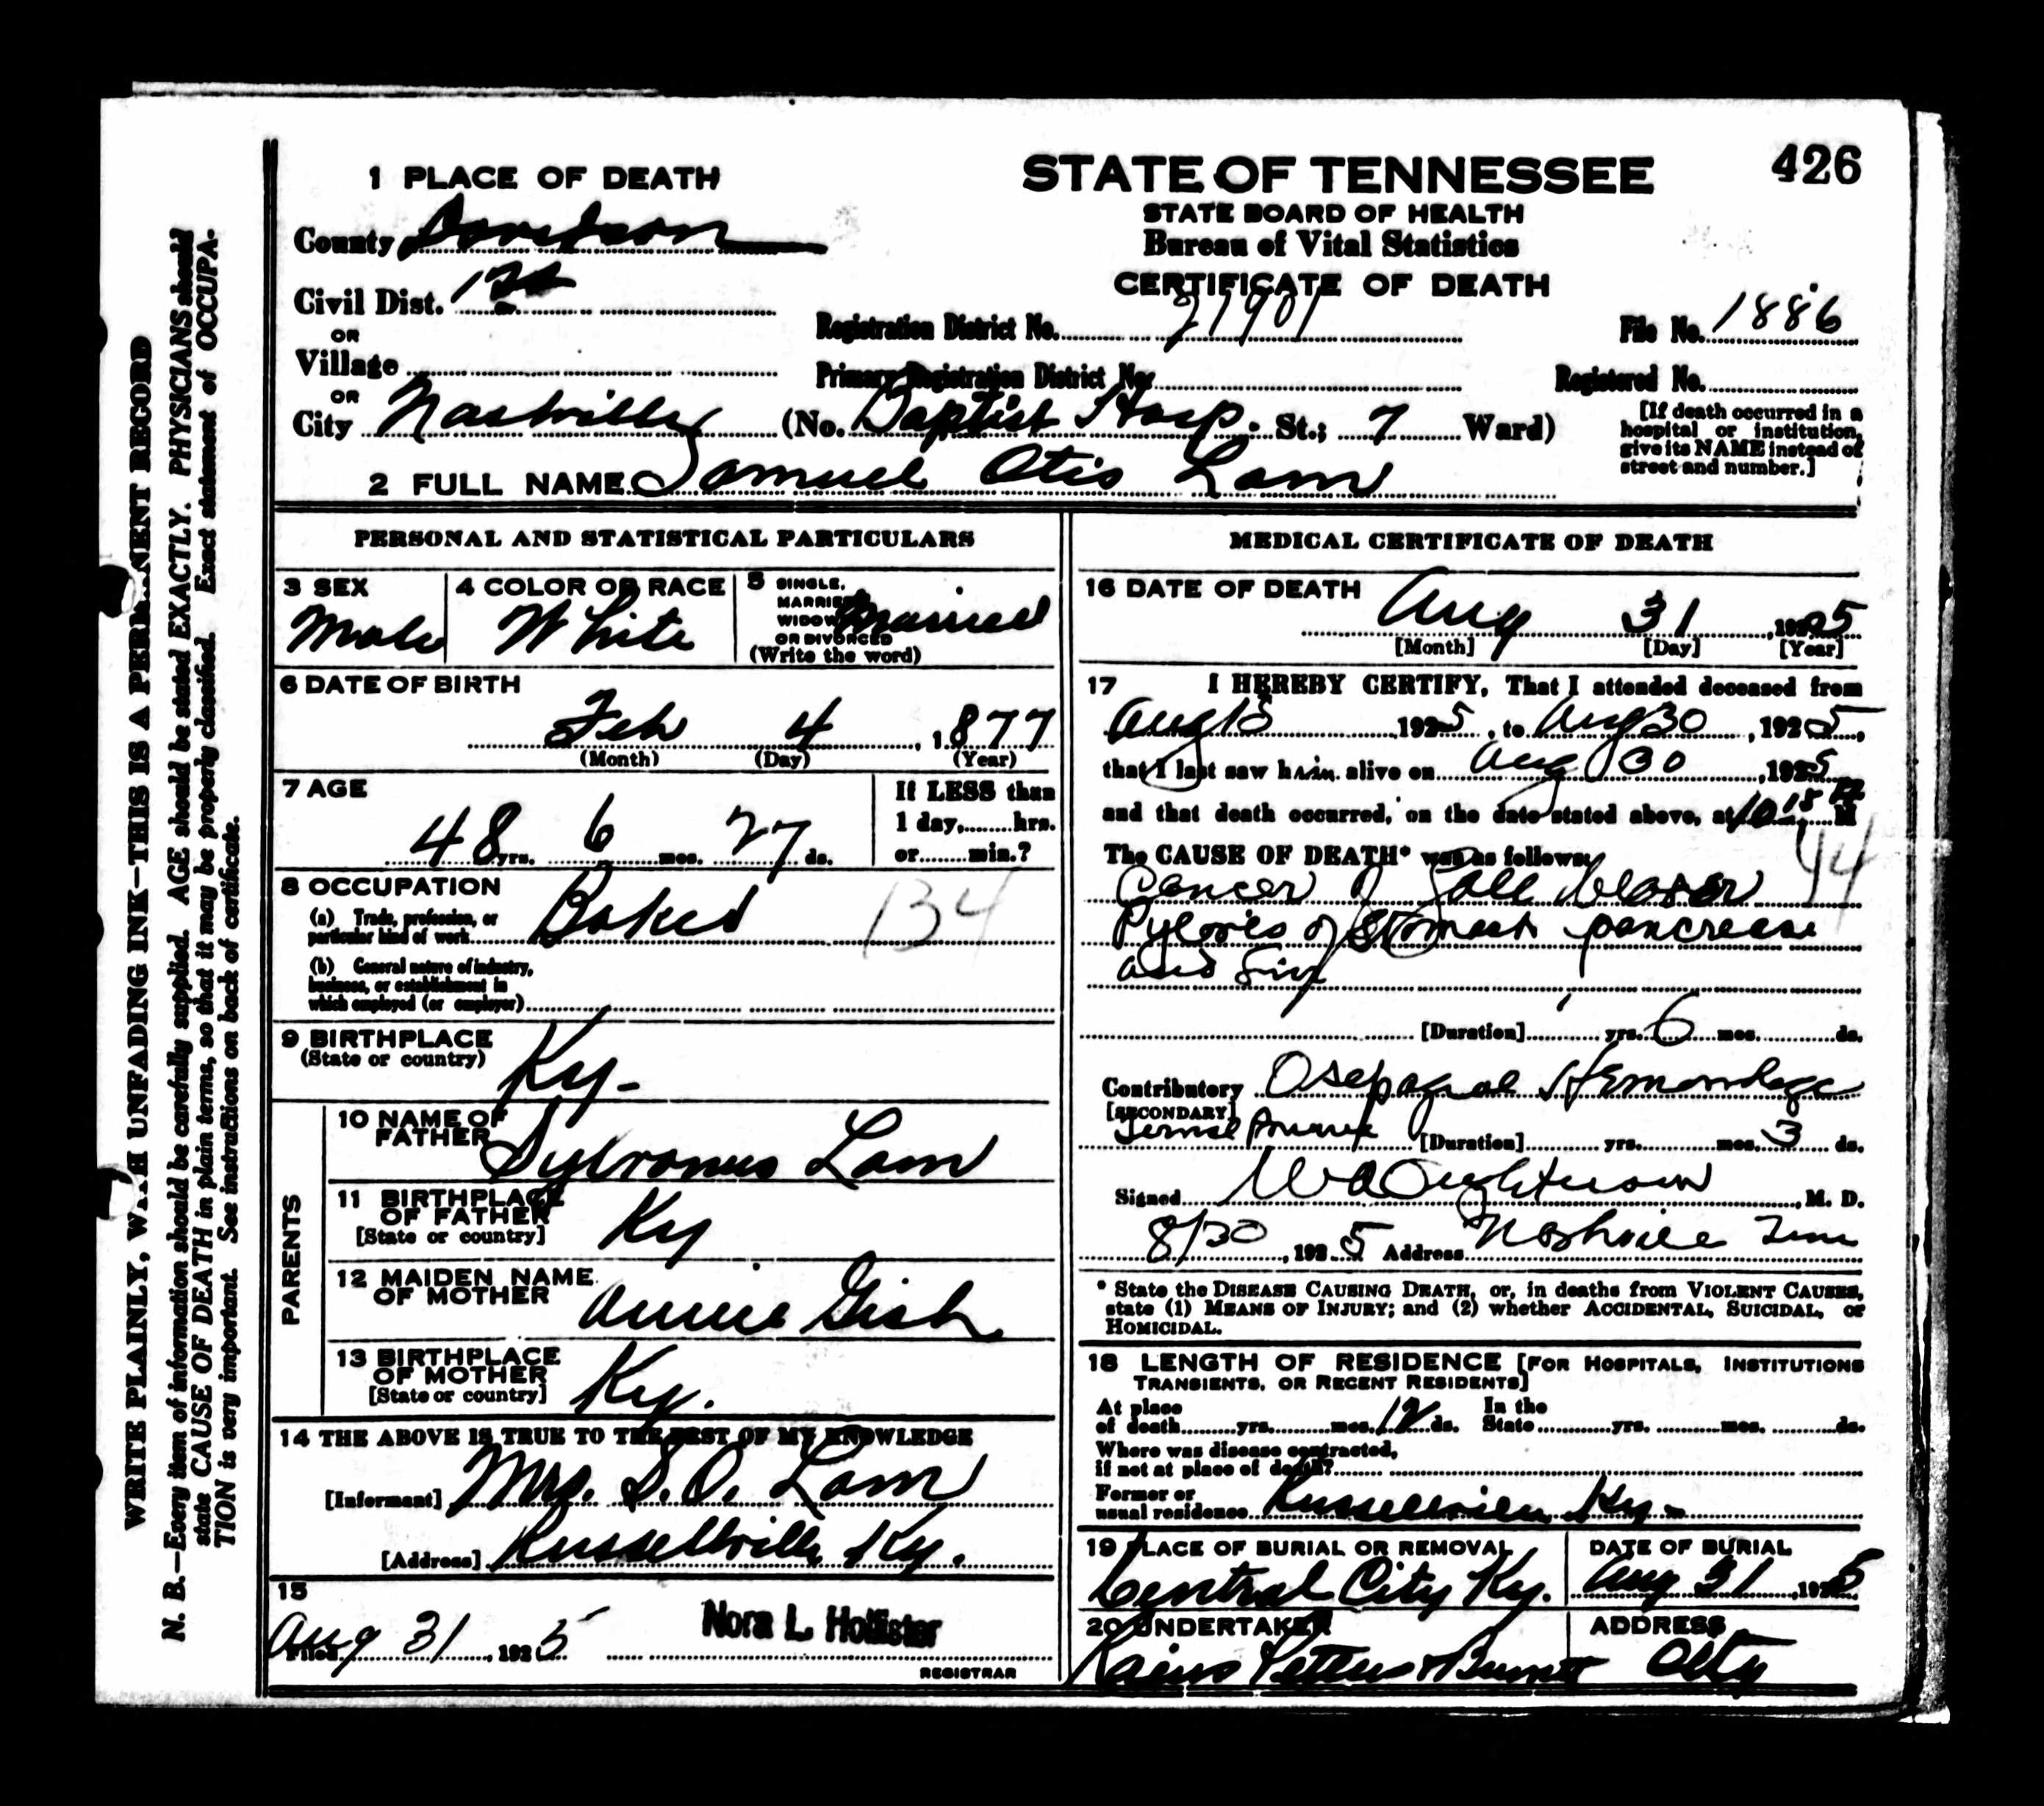 426
STATE OF TENNESSEE
STATE BOARD OF HEALTH
Bureau of Vital Statistics
CERTIFICATE OF DEATH
1 PLACE OF DEATH
County Davidson
Civil Dist.
OR
Village
OR
City Nashville (No. Baptist Hosp. St.; 7 Ward)
Registration District No. 21901
File No. 1886
Primary Registration District No.
Registered No.
[If death occurred in a
hospital or institution,
give its NAME instead of
street and number.]
2 FULL NAME Samuel Otis Lam
PERSONAL AND STATISTICAL PARTICULARS
3 SEX
Male
4 COLOR OR RACE
White
5 SINGLE,
MARRIED
WIDOWED
OR DIVORCED
(Write the word)
Married
6 DATE OF BIRTH
Feb 4, 1877
(Month) (Day) (Year)
7 AGE
48 yrs. 6 mos. 27 ds.
If LESS than
1 day, hrs.
or min.?
8 OCCUPATION
(a) Trade, profession, or
particular kind of work Baker
134
(b) General nature of industry,
business, or establishment in
which employed (or employer)
9 BIRTHPLACE
(State or country) Ky-
PARENTS
10 NAME OF
FATHER Sylvanus Lam
11 BIRTHPLACE
OF FATHER
[State or country] Ky
12 MAIDEN NAME
OF MOTHER Annie Gish
13 BIRTHPLACE
OF MOTHER
[State or country] Ky.
14 THE ABOVE IS TRUE TO THE BEST OF MY KNOWLEDGE
[Informant] Mrs. S.O. Lam
[Address] Russellville Ky.
15
Filed Aug 31, 1925
Nora L. Hollister
REGISTRAR
MEDICAL CERTIFICATE OF DEATH
16 DATE OF DEATH
Aug 31, 1925
[Month] [Day] [Year]
17 I HEREBY CERTIFY, That I attended deceased from
Aug 18 1925, to Aug 30, 1925,
that I last saw him alive on Aug 30, 1925
and that death occurred, on the date stated above, at 10 15 M
The CAUSE OF DEATH* was as follows:
44
Cancer of Gall
of Stomach pancreas
and
[Duration] yrs. 6 mos. ds.
Contributory
[SECONDARY]
[Duration] yrs. mos. 3 ds.
Signed , M. D.
8/30, 1925 Address Nashville Tenn
* State the DISEASE CAUSING DEATH, or, in deaths from VIOLENT CAUSES,
state (1) MEANS OF INJURY; and (2) whether ACCIDENTAL, SUICIDAL, or
HOMICIDAL.
18 LENGTH OF RESIDENCE [FOR HOSPITALS, INSTITUTIONS
TRANSIENTS, OR RECENT RESIDENTS]
At place
of death yrs. mos. 12 ds.
In the
State yrs. mos. ds.
Where was disease contracted,
if not at place of death?
Former or
usual residence Russellville Ky-
19 PLACE OF BURIAL OR REMOVAL
Central City Ky.
DATE OF BURIAL
Aug 31, 1925
20 UNDERTAKER
ADDRESS
City
WRITE PLAINLY, WITH UNFADING INK—THIS IS A PERMANENT RECORD
N. B.—Every item of information should be carefully supplied. AGE should be stated EXACTLY. PHYSICIANS should
state CAUSE OF DEATH in plain terms, so that it may be properly classified. Exact statement of OCCUPA-
TION is very important. See instructions on back of certificate.